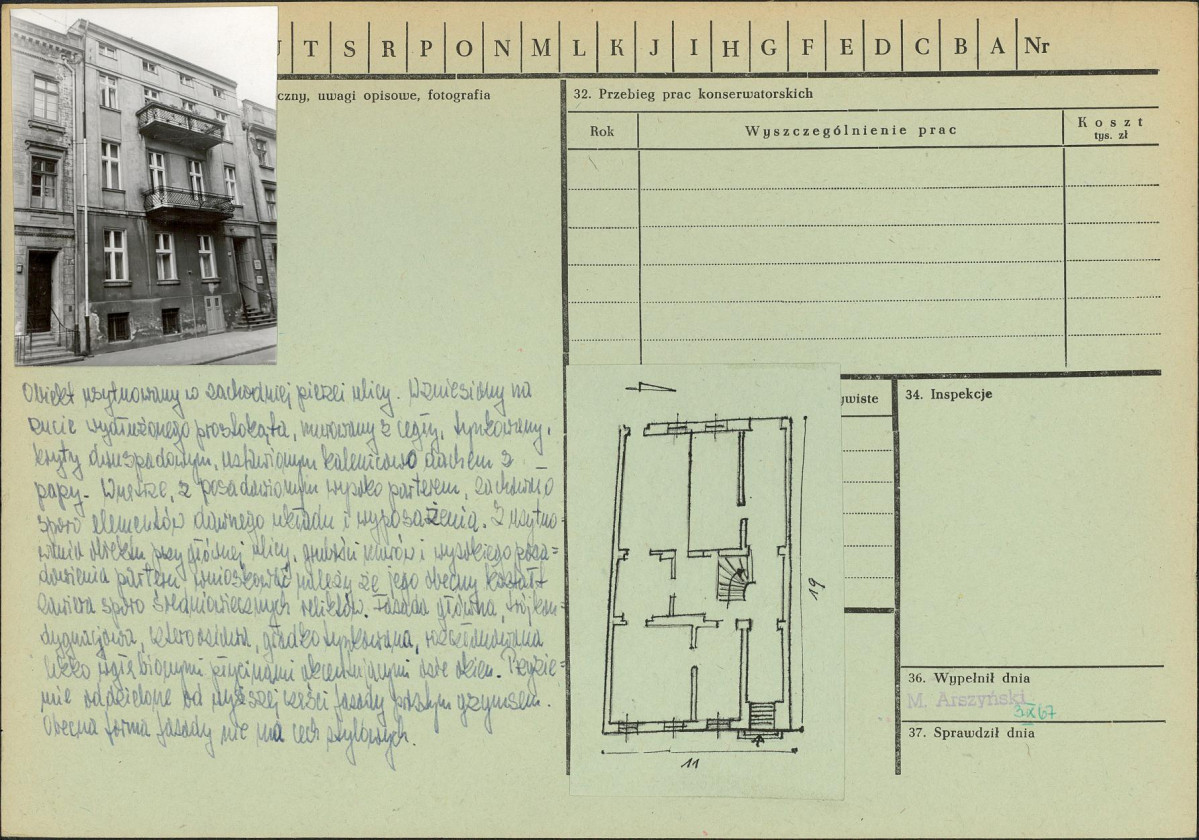 T S R P O N M L K J I H G F E D C B A Nr
czny, uwagi opisowe, fotografia
32. Przebieg prac konserwatorskich
Rok
Wyszczególnienie prac
Koszt
tys. zł
Obiekt usytuowany w zachodniej pierzei ulicy. Wzniesiony na
rzucie wydłużonego prostokąta, murowany z cegły, tynkowany,
kryty dwuspadowym, ustawionym kalenicowo dachem z
papy. Wnętrze, z posadowionym wysoko parterem, zachowało
sporo elementów dawnego układu i wyposażenia. Z usytuo-
wania obiektu przy głównej ulicy, grubości murów i wysokiego posa-
dowienia parteru wnioskować należy że jego obecny kształt
zawiera sporo średniowiecznych reliktów. Fasada główna, trójkon-
dygnacjowa, czteroosiowa, gładko tynkowana, rozczłonkowana
lekko wgłębionymi płycinami akcentującymi osie okien. Przyzie-
mie oddzielone od wyższej części fasady prostym gzymsem.
Obecna forma fasady nie ma cech stylowych.
19
11
ywiste
34. Inspekcje
36. Wypełnił dnia
M. Arszyński
3 X 67
37. Sprawdził dnia